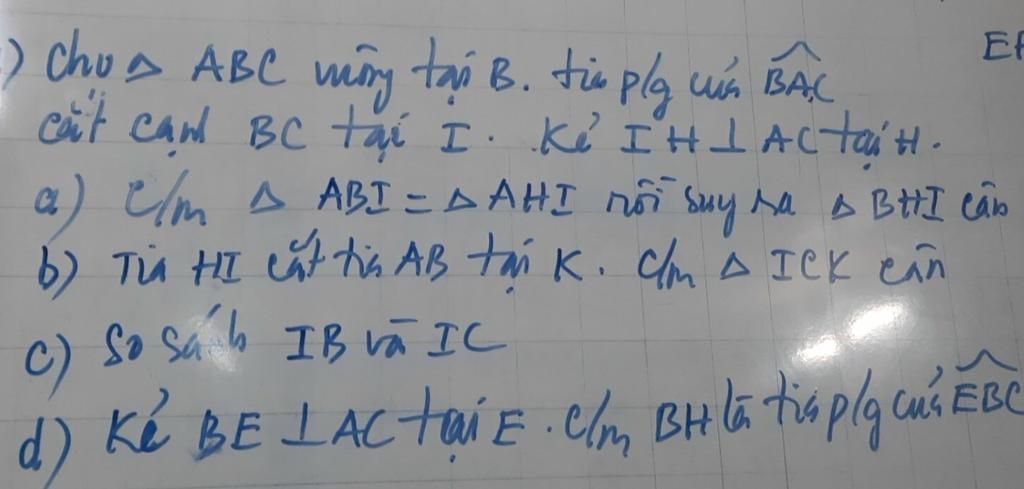 ) Cho △ ABC vuông tại B. tia p/g của BAC
cắt cạnh BC tại I. Kẻ IH⊥AC tại H.
a) C/m △ ABI = △ AHI rồi suy ra △ BHI cân
b) Tia HI cắt tia AB tại K. C/m △ ICK cân
c) So sánh IB và IC
d) Kẻ BE ⊥AC tại E. C/m BH là tia p/g của EBC